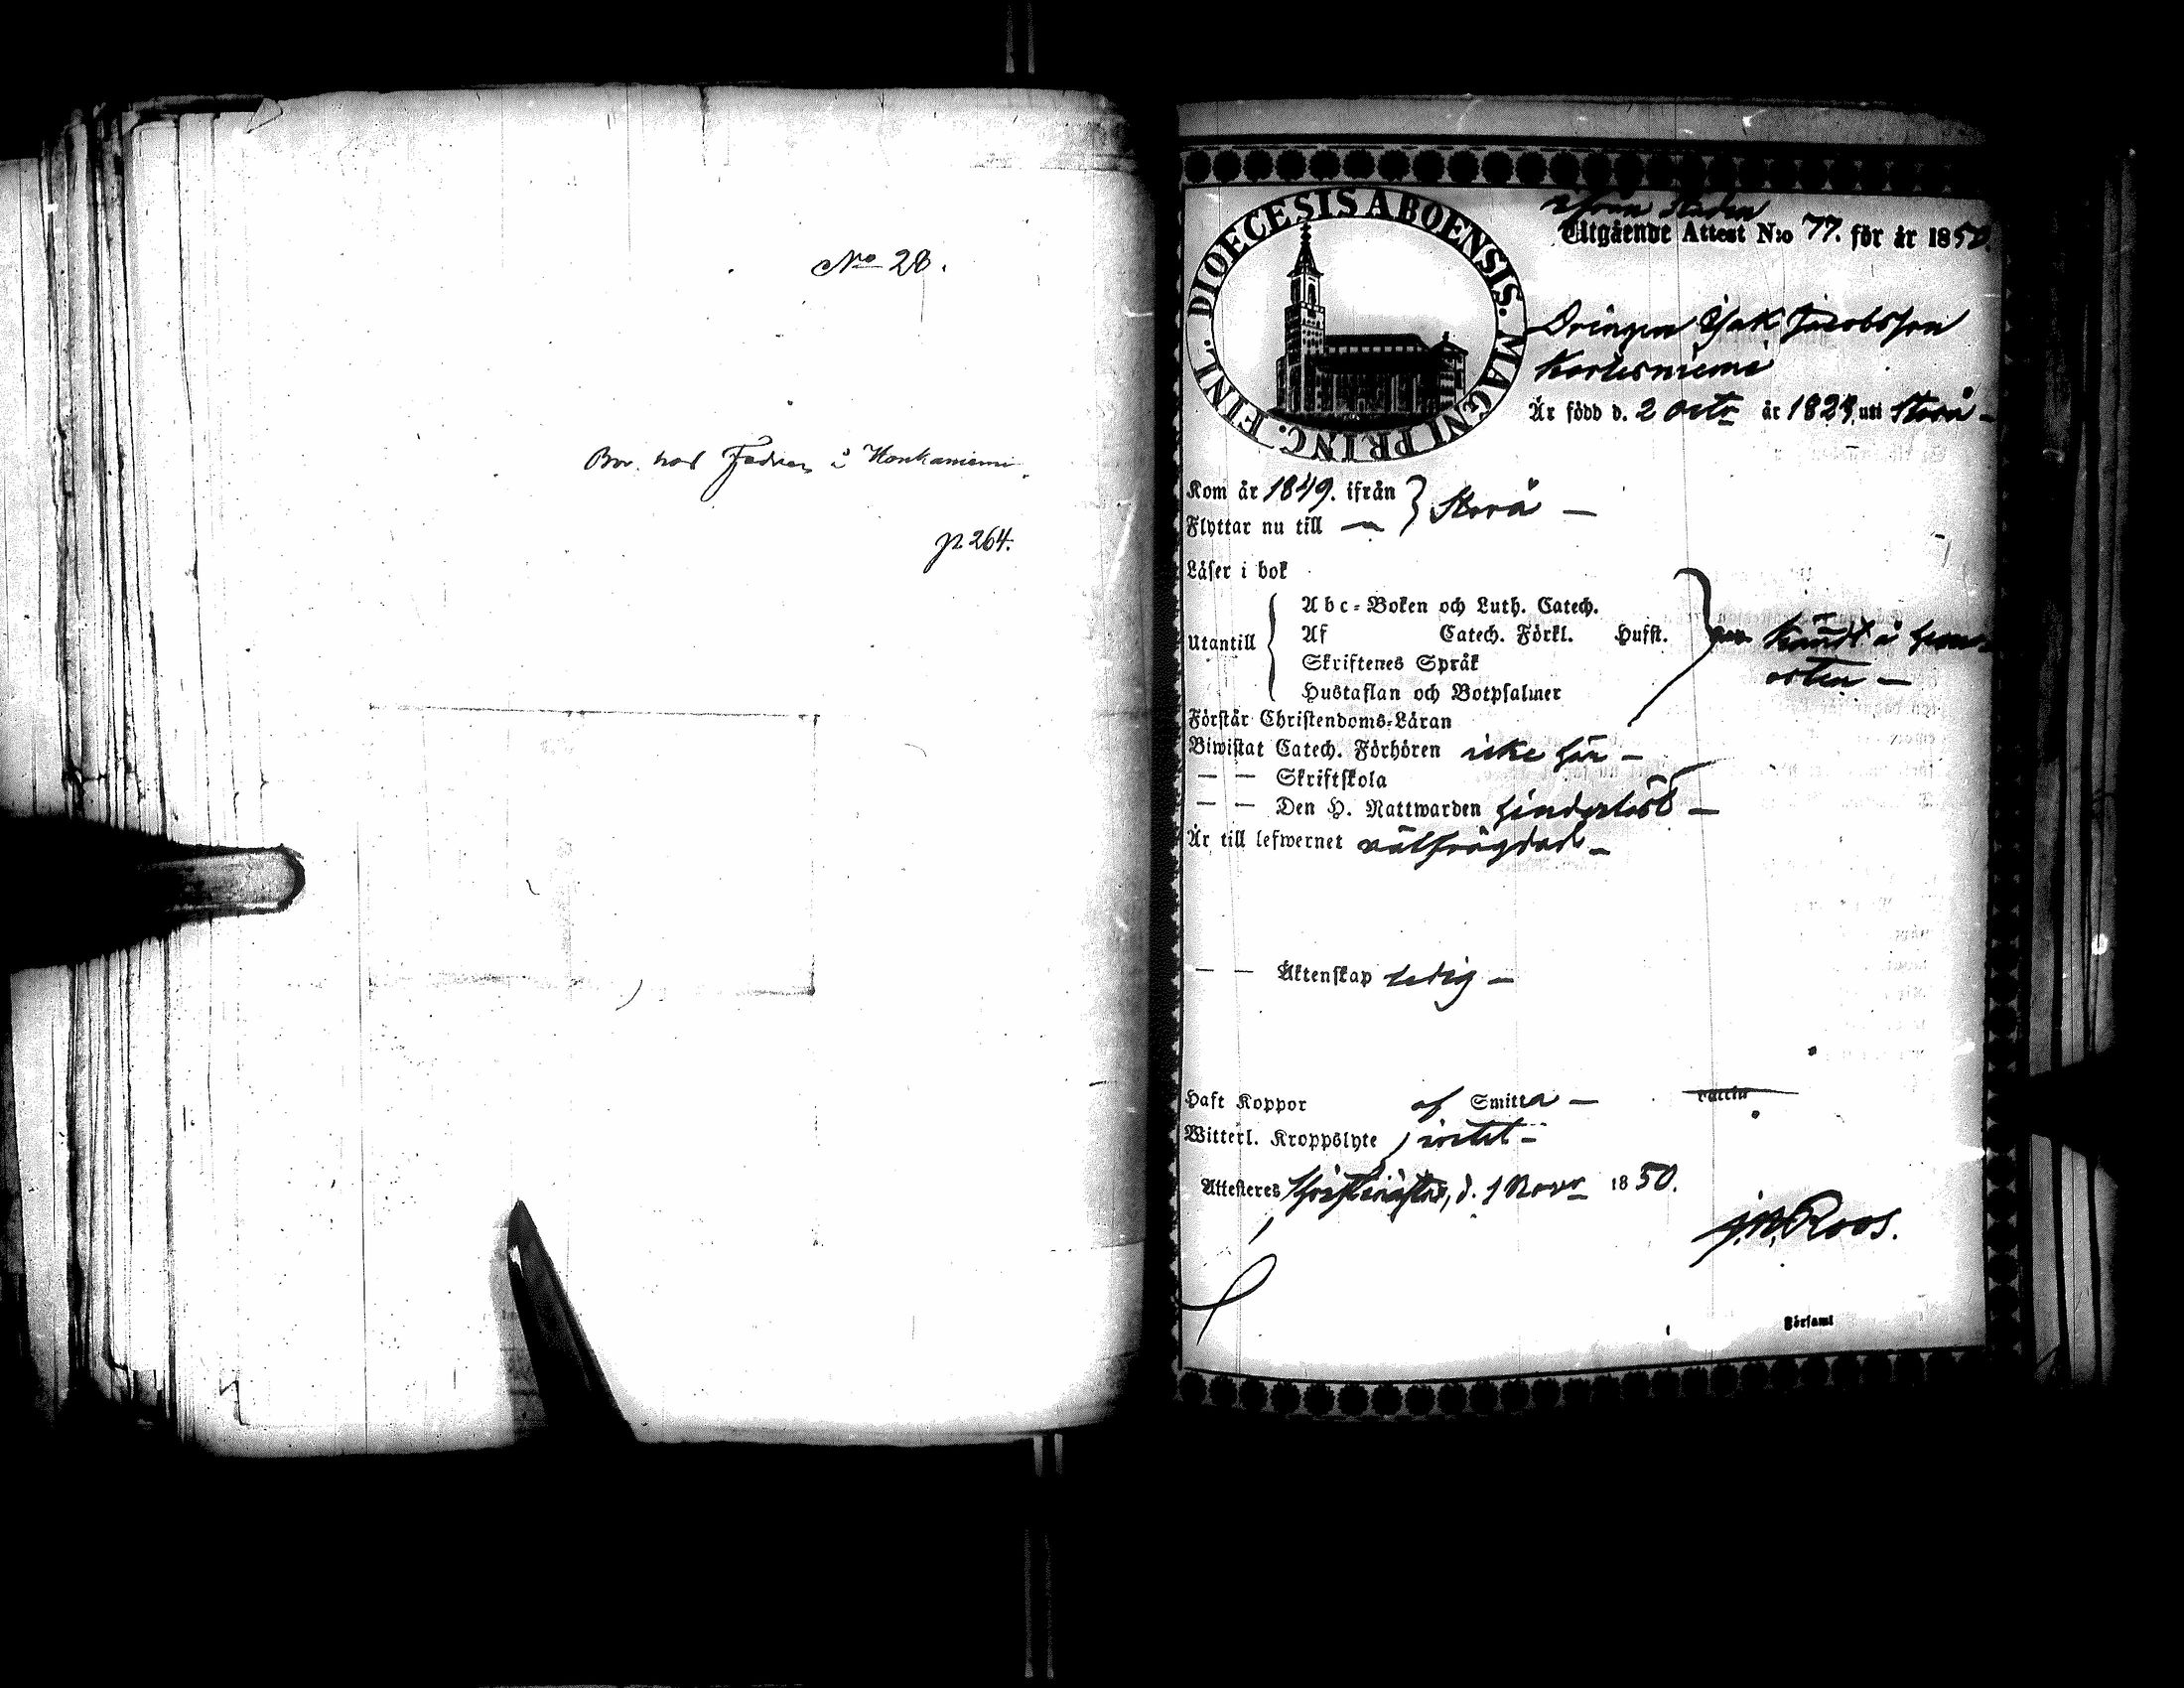 No 28.
Bor hos Fadren å Honkaniemi.
p. 264.
DIOECESIS ABOENSIS. MAGNI PRINC. FINL.
ifrån staden
Utgående Attest N:o 77. för år 1850.
Drängen Isak Jacobsson
Kortesniemi
Är född d. 2 Octr år 1829, uti Storå —
Kom år 1849. ifrån } Storå —
Flyttar nu till —
Läser i bok
Abc-Boken och Luth. Catech.
Utantill Af Catech. Förkl. Husst. känt å hem-
Skriftenes Språk orten —
Hustaflan och Botpsalmer
Förstår Christendoms-Läran
Biwistat Catech. Förhören icke här —
— — Skriftskola
— — Den H. Nattwarden hinderlöst —
Är till lefwernet välfrägdad —
— — Äktenskap ledig —
Haft Koppor af Smitta —
Witterl. Kroppslyte intet —
Attesteres Christinæstad, d. 1 Novr 1850.
Roos.
Församl